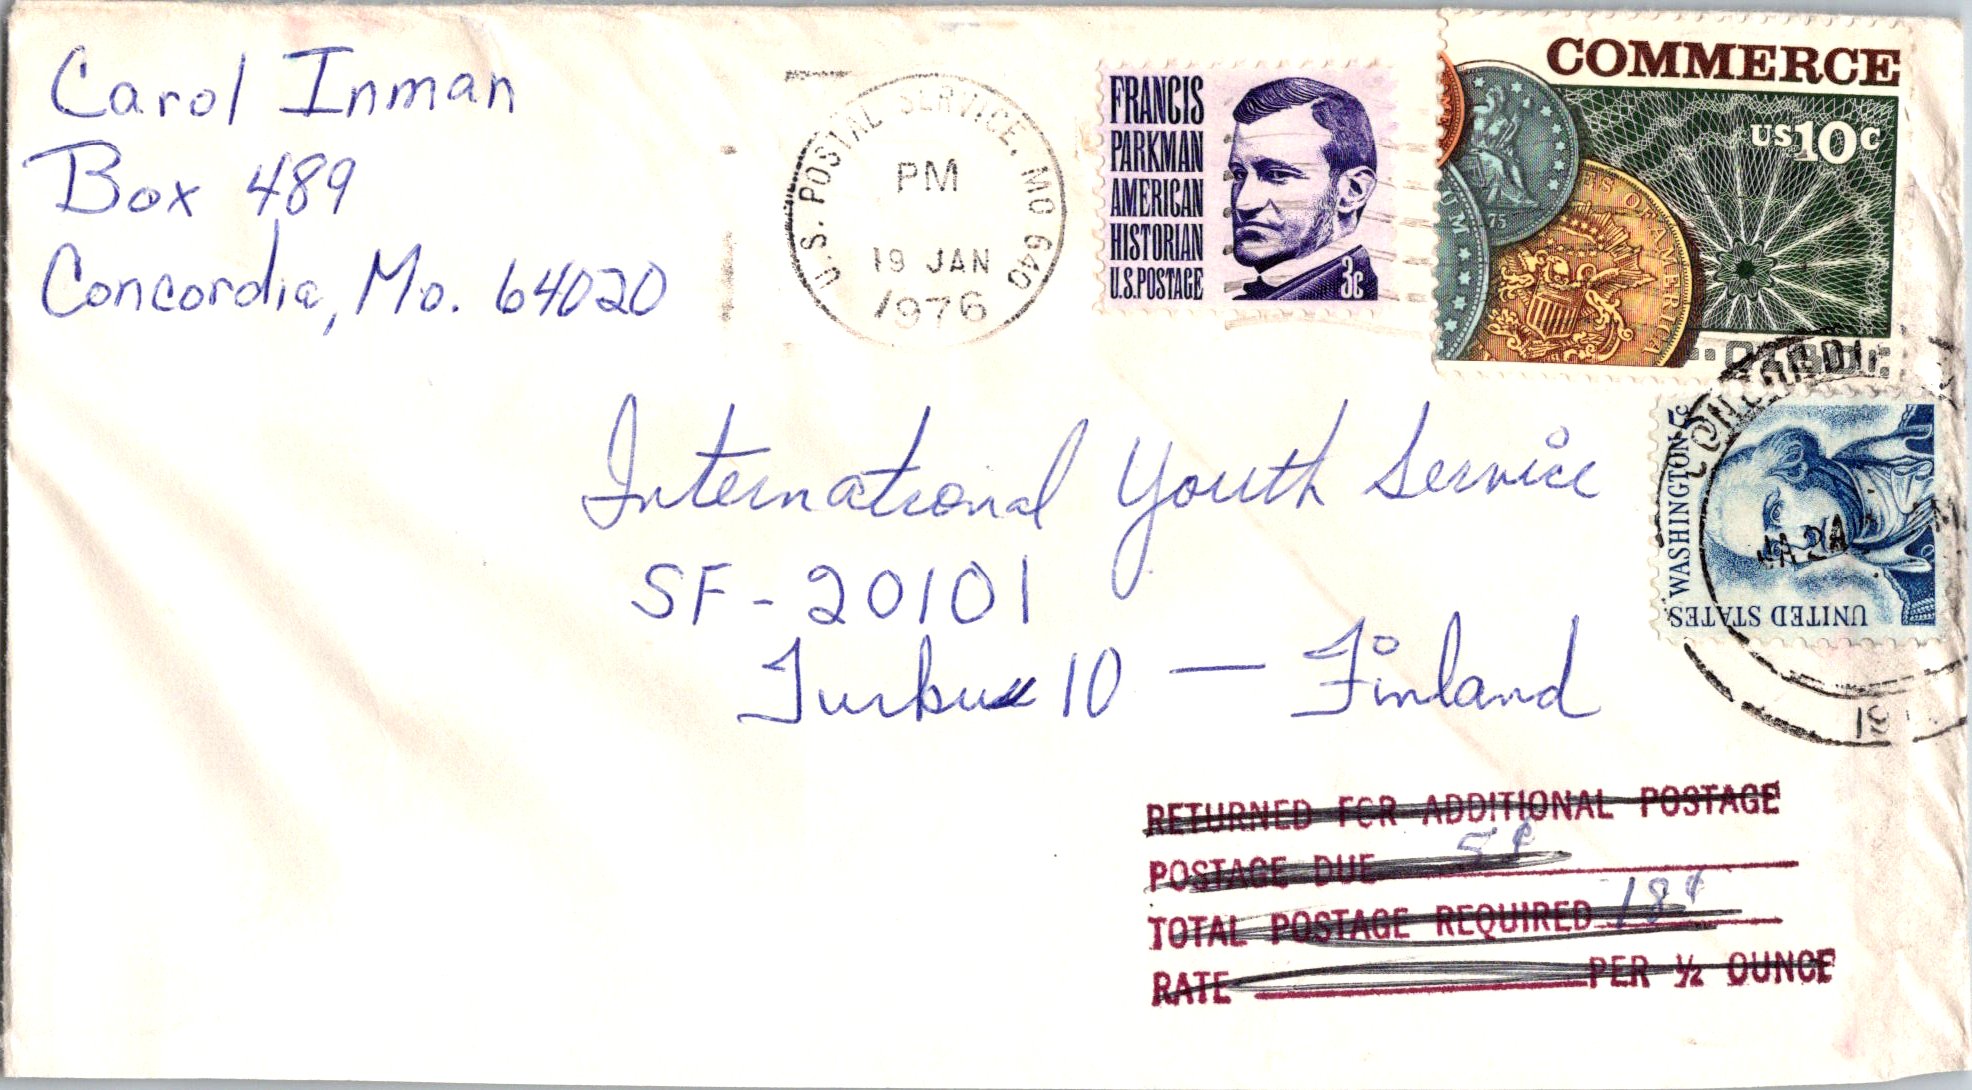 Carol Inman
Box 489
Concordia, Mo. 64020
U.S. POSTAL SERVICE, MO 640
PM
19 JAN
1976
FRANCIS
PARKMAN
AMERICAN
HISTORIAN
U.S. POSTAGE
3c
COMMERCE
US 10c
WASHINGTON 5c
UNITED STATES
International Youth Service
SF-20101
Turku 10 — Finland
RETURNED FOR ADDITIONAL POSTAGE
POSTAGE DUE 5¢
TOTAL POSTAGE REQUIRED 18¢
RATE PER ½ OUNCE